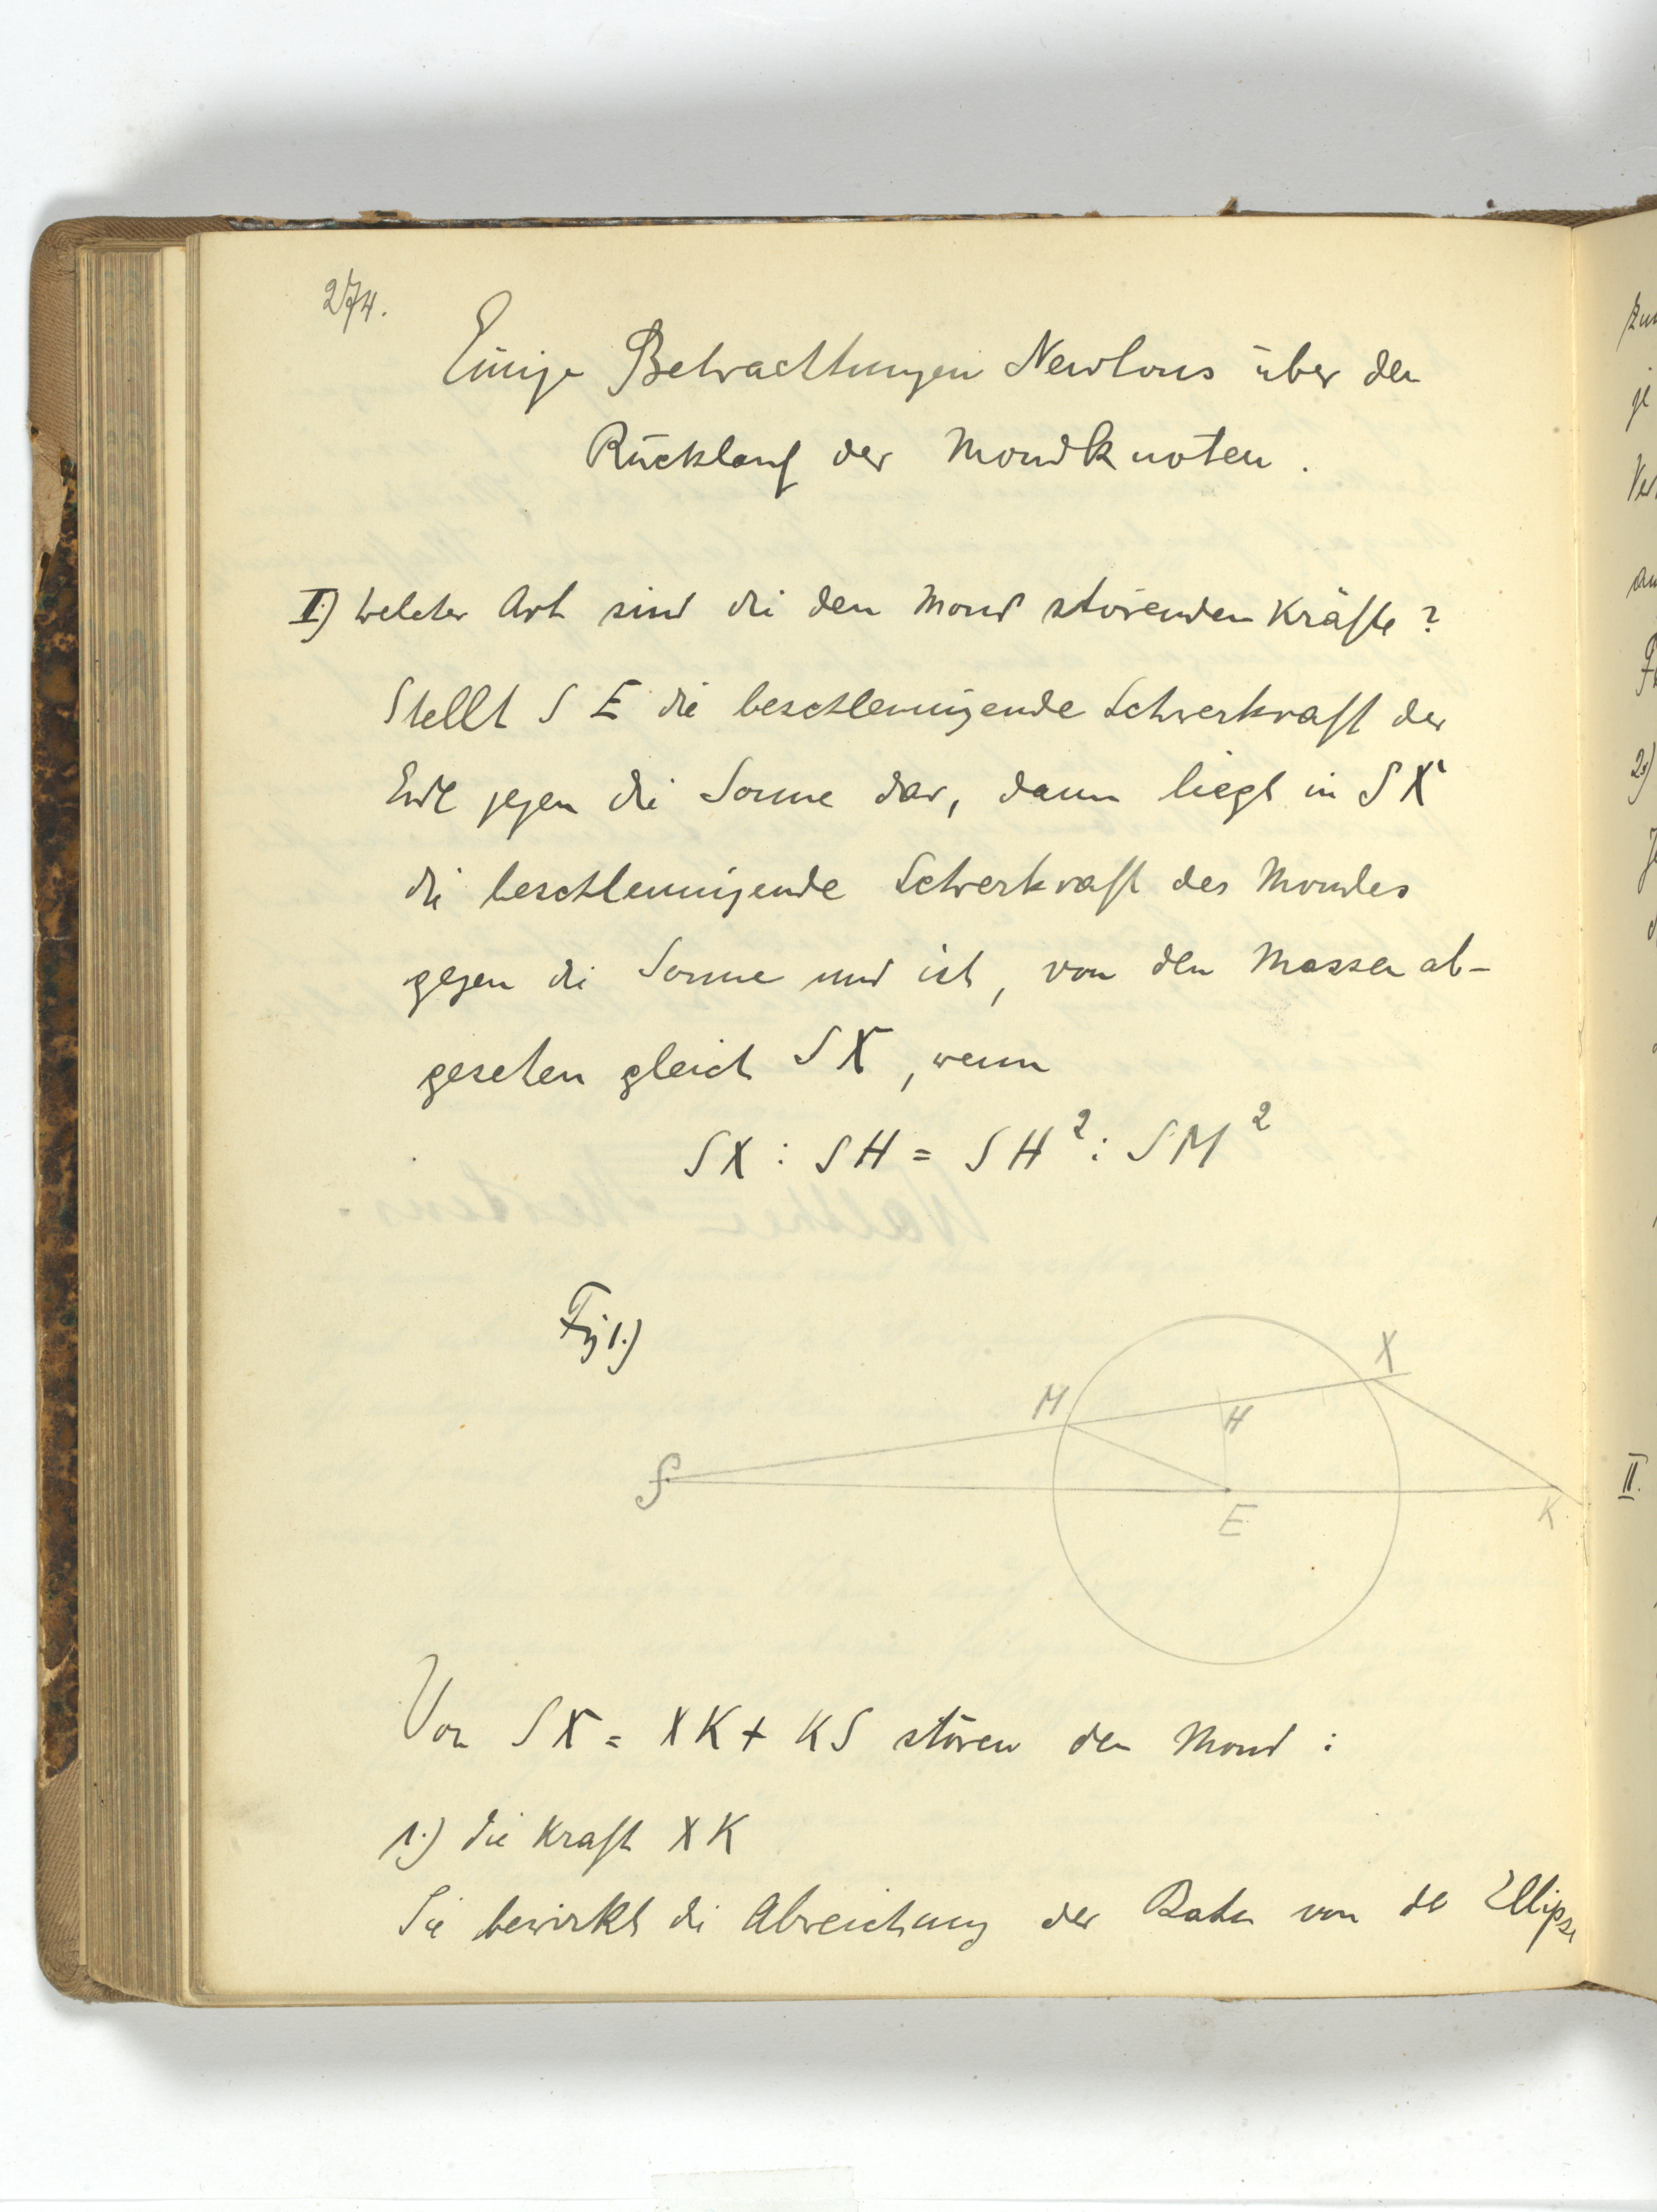 274.
Einige Betrachtungen Newtons über den
Rücklauf der Mondknoten.
I.) Welcher Art sind die den Mond störenden Kräfte?
Stellt S E die beschleunigende Schwerkraft der
Erde gegen die Sonne dar, dann liegt in SX
die beschleunigende Schwerkraft des Mondes
gegen die Sonne und ist, von den Massen ab-
gesehen gleich SX, wenn
SX : SH = SH² : SM²
Fig 1.)
X
M
H
S
E
K
Von SX = XK + KS stören den Mond:
1.) die Kraft XK
Sie bewirkt die Abweichung der Bahn von der Ellipse
2.)
II.